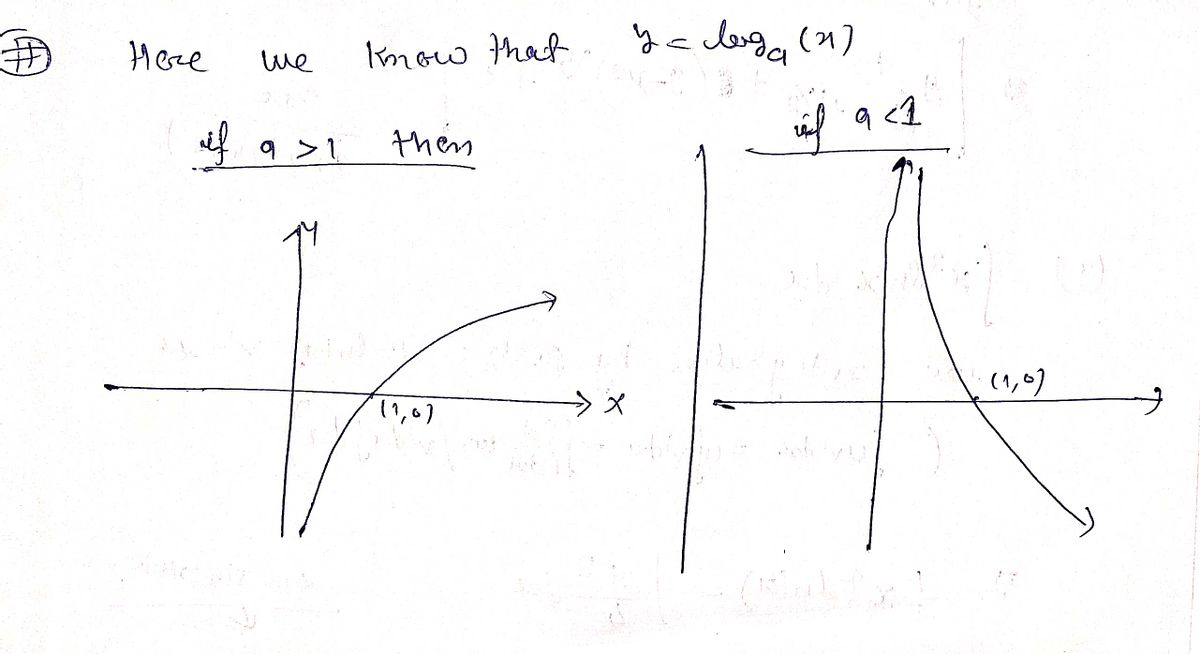 # Here we know that y = log_a (x)
if a > 1 then
if a < 1
y
(1,0)
x
(1,0)